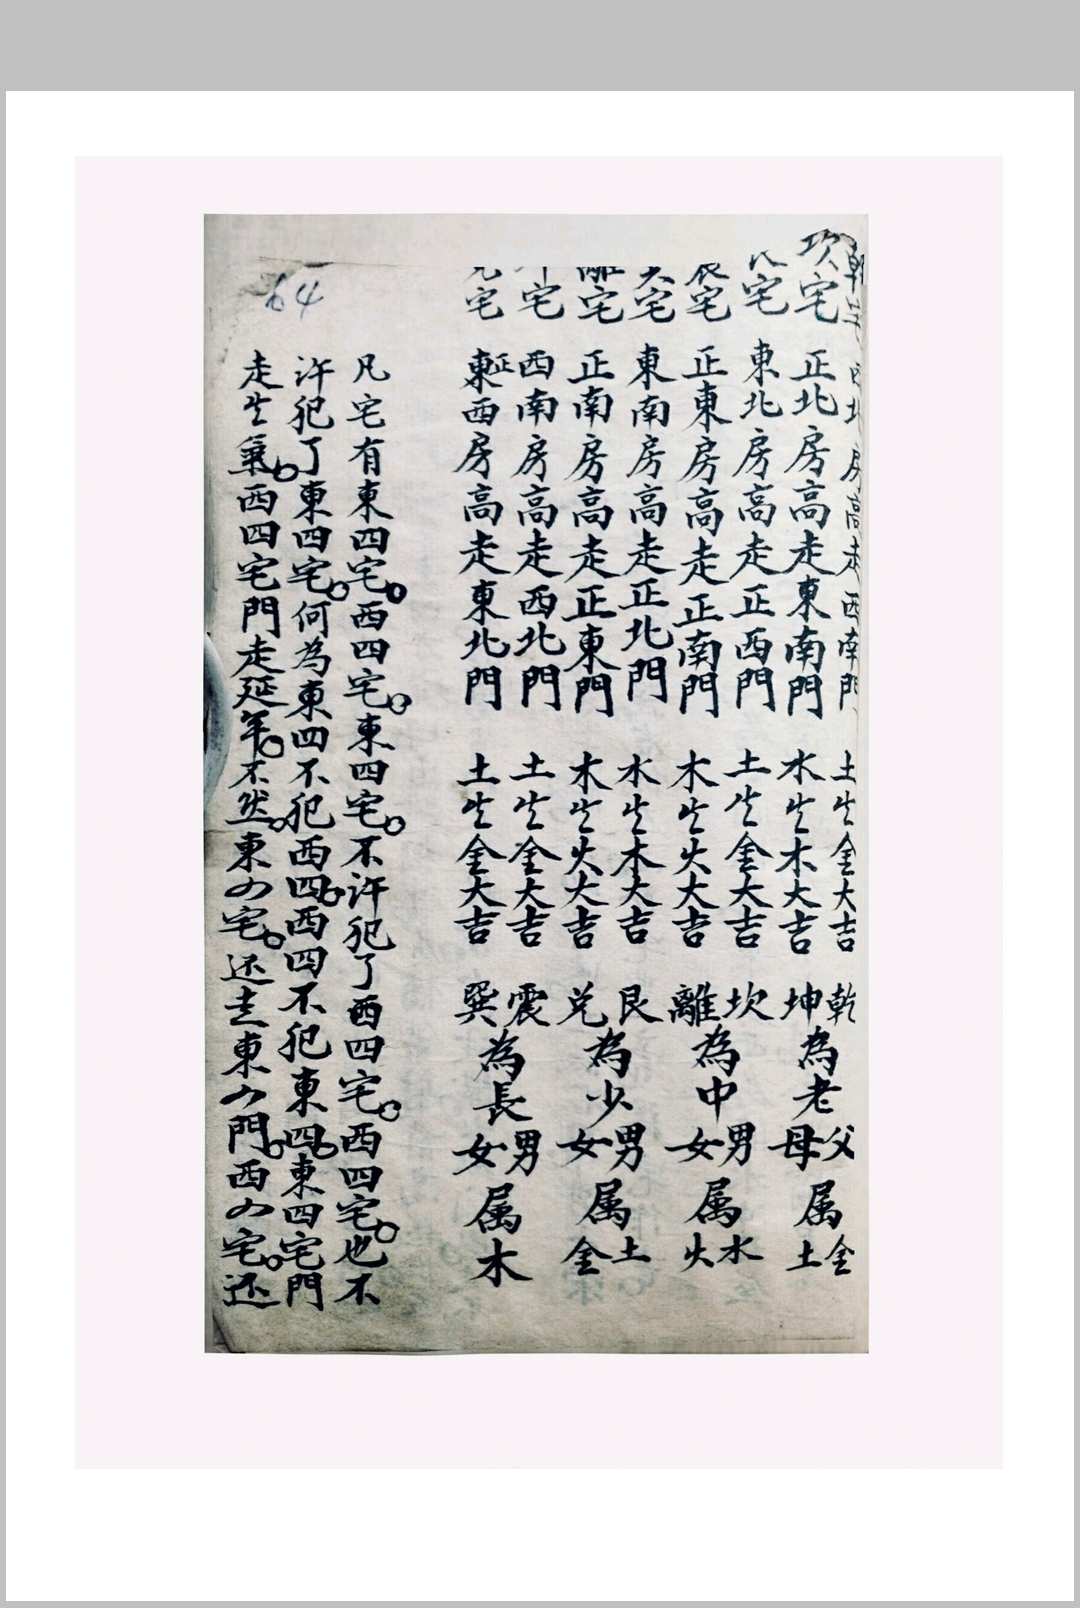 乾宅 西北房高走西南門 土生金大吉
坎宅 正北房高走東南門 水生木大吉
宅 東北房高走正西門 土生金大吉
宅 正東房高走正南門 木生火大吉
宅 東南房高走正北門 水生木大吉
離宅 正南房高走正東門 木生火大吉
宅 西南房高走西北門 土生金大吉
宅 正東西房高走東北門 土生金大吉
乾坤為老父母属金土
坎離為中男女属水火
艮兑為少男女属土金
震巽為長男女属木
凡宅有東四宅。西四宅。東四宅。不許犯了西四宅。西四宅。也不
許犯了東四宅。何為東四不犯西四。西四不犯東四。東四宅門
走生氣。西四宅門走延年。不然。東四宅。还走東四門。西四宅。还
64